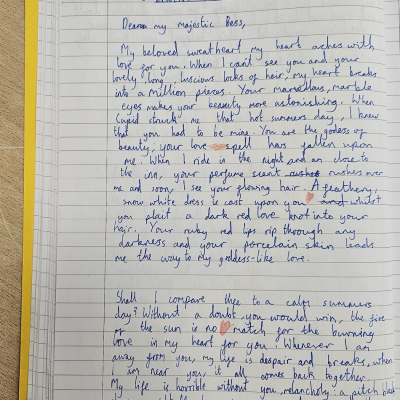 Dearea my majestic Bess,
My beloved sweatheart my heart aches with
love for you. When I can't see you and your
lovely, long, luscious locks of hair, my heart breaks
into a million pieces. Your marvellous, marble
eyes makes your beauty more astonishing. When
Cupid struck me that hot summers day, I knew
that you had to be mine. You are the godess of
beauty; your love spell has fallen upon
me. When I ride in the night and am close to
the inn, your perfume scent rushes rushes over
me and soon, I see your flowing hair. A feathery,
snow white dress is cast upon you and whilst
you plait a dark red love knot into your
hair. Your ruby red lips rip through any
darkness and your porcelain skin leads
me the way to my goddess-like love.
Shall I compare thee to a calm summers
day? Without a doubt, you would win, the fire
of the sun is no match for the burning
love in my heart for you. Whenever I am
away from you, my life is despair and breaks, when
I am near you, it all comes back together.
My life is horrible without you, melancholy: a pitch black